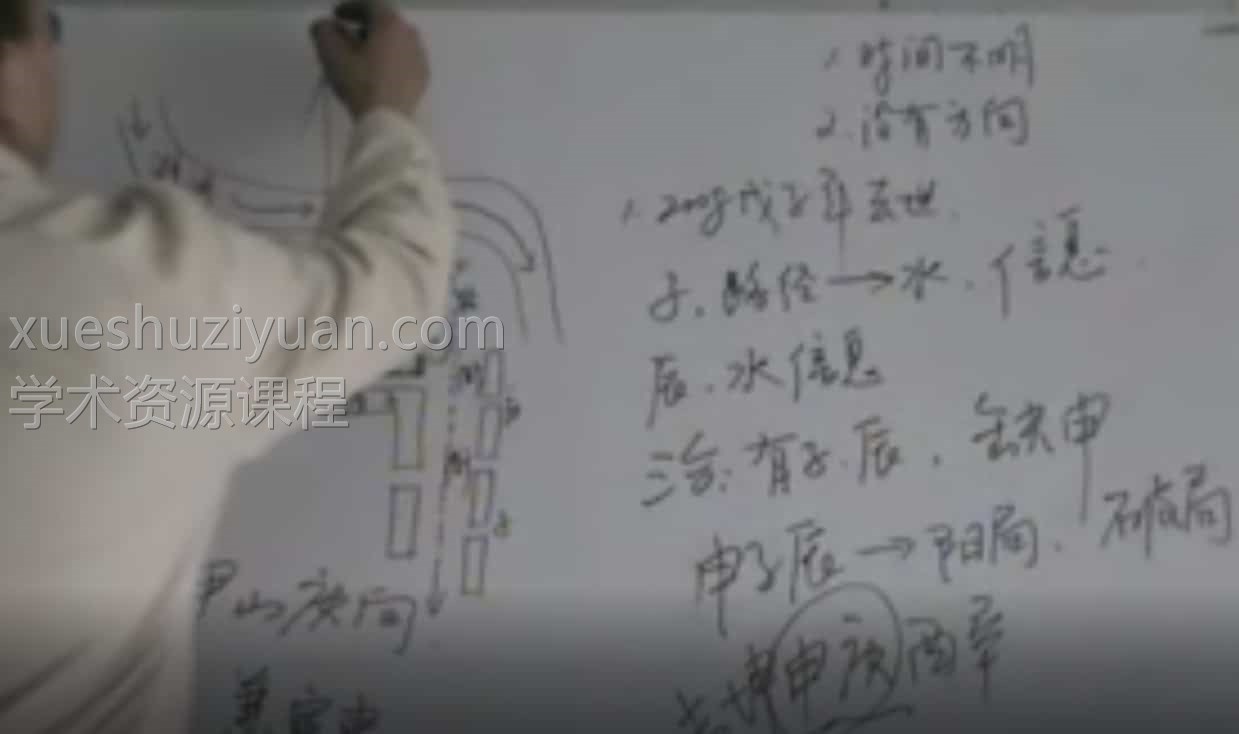 1. 时间不明
2. 没有方向
1. 2008戊子年去世.
子. 路径→水. 信息.
辰. 水信息
三合: 有子. 辰. 缺申
申子辰→阳局. 破局
申庚酉辛
甲山庚向
兼寅申
xueshuziyuan.com
学术资源课程